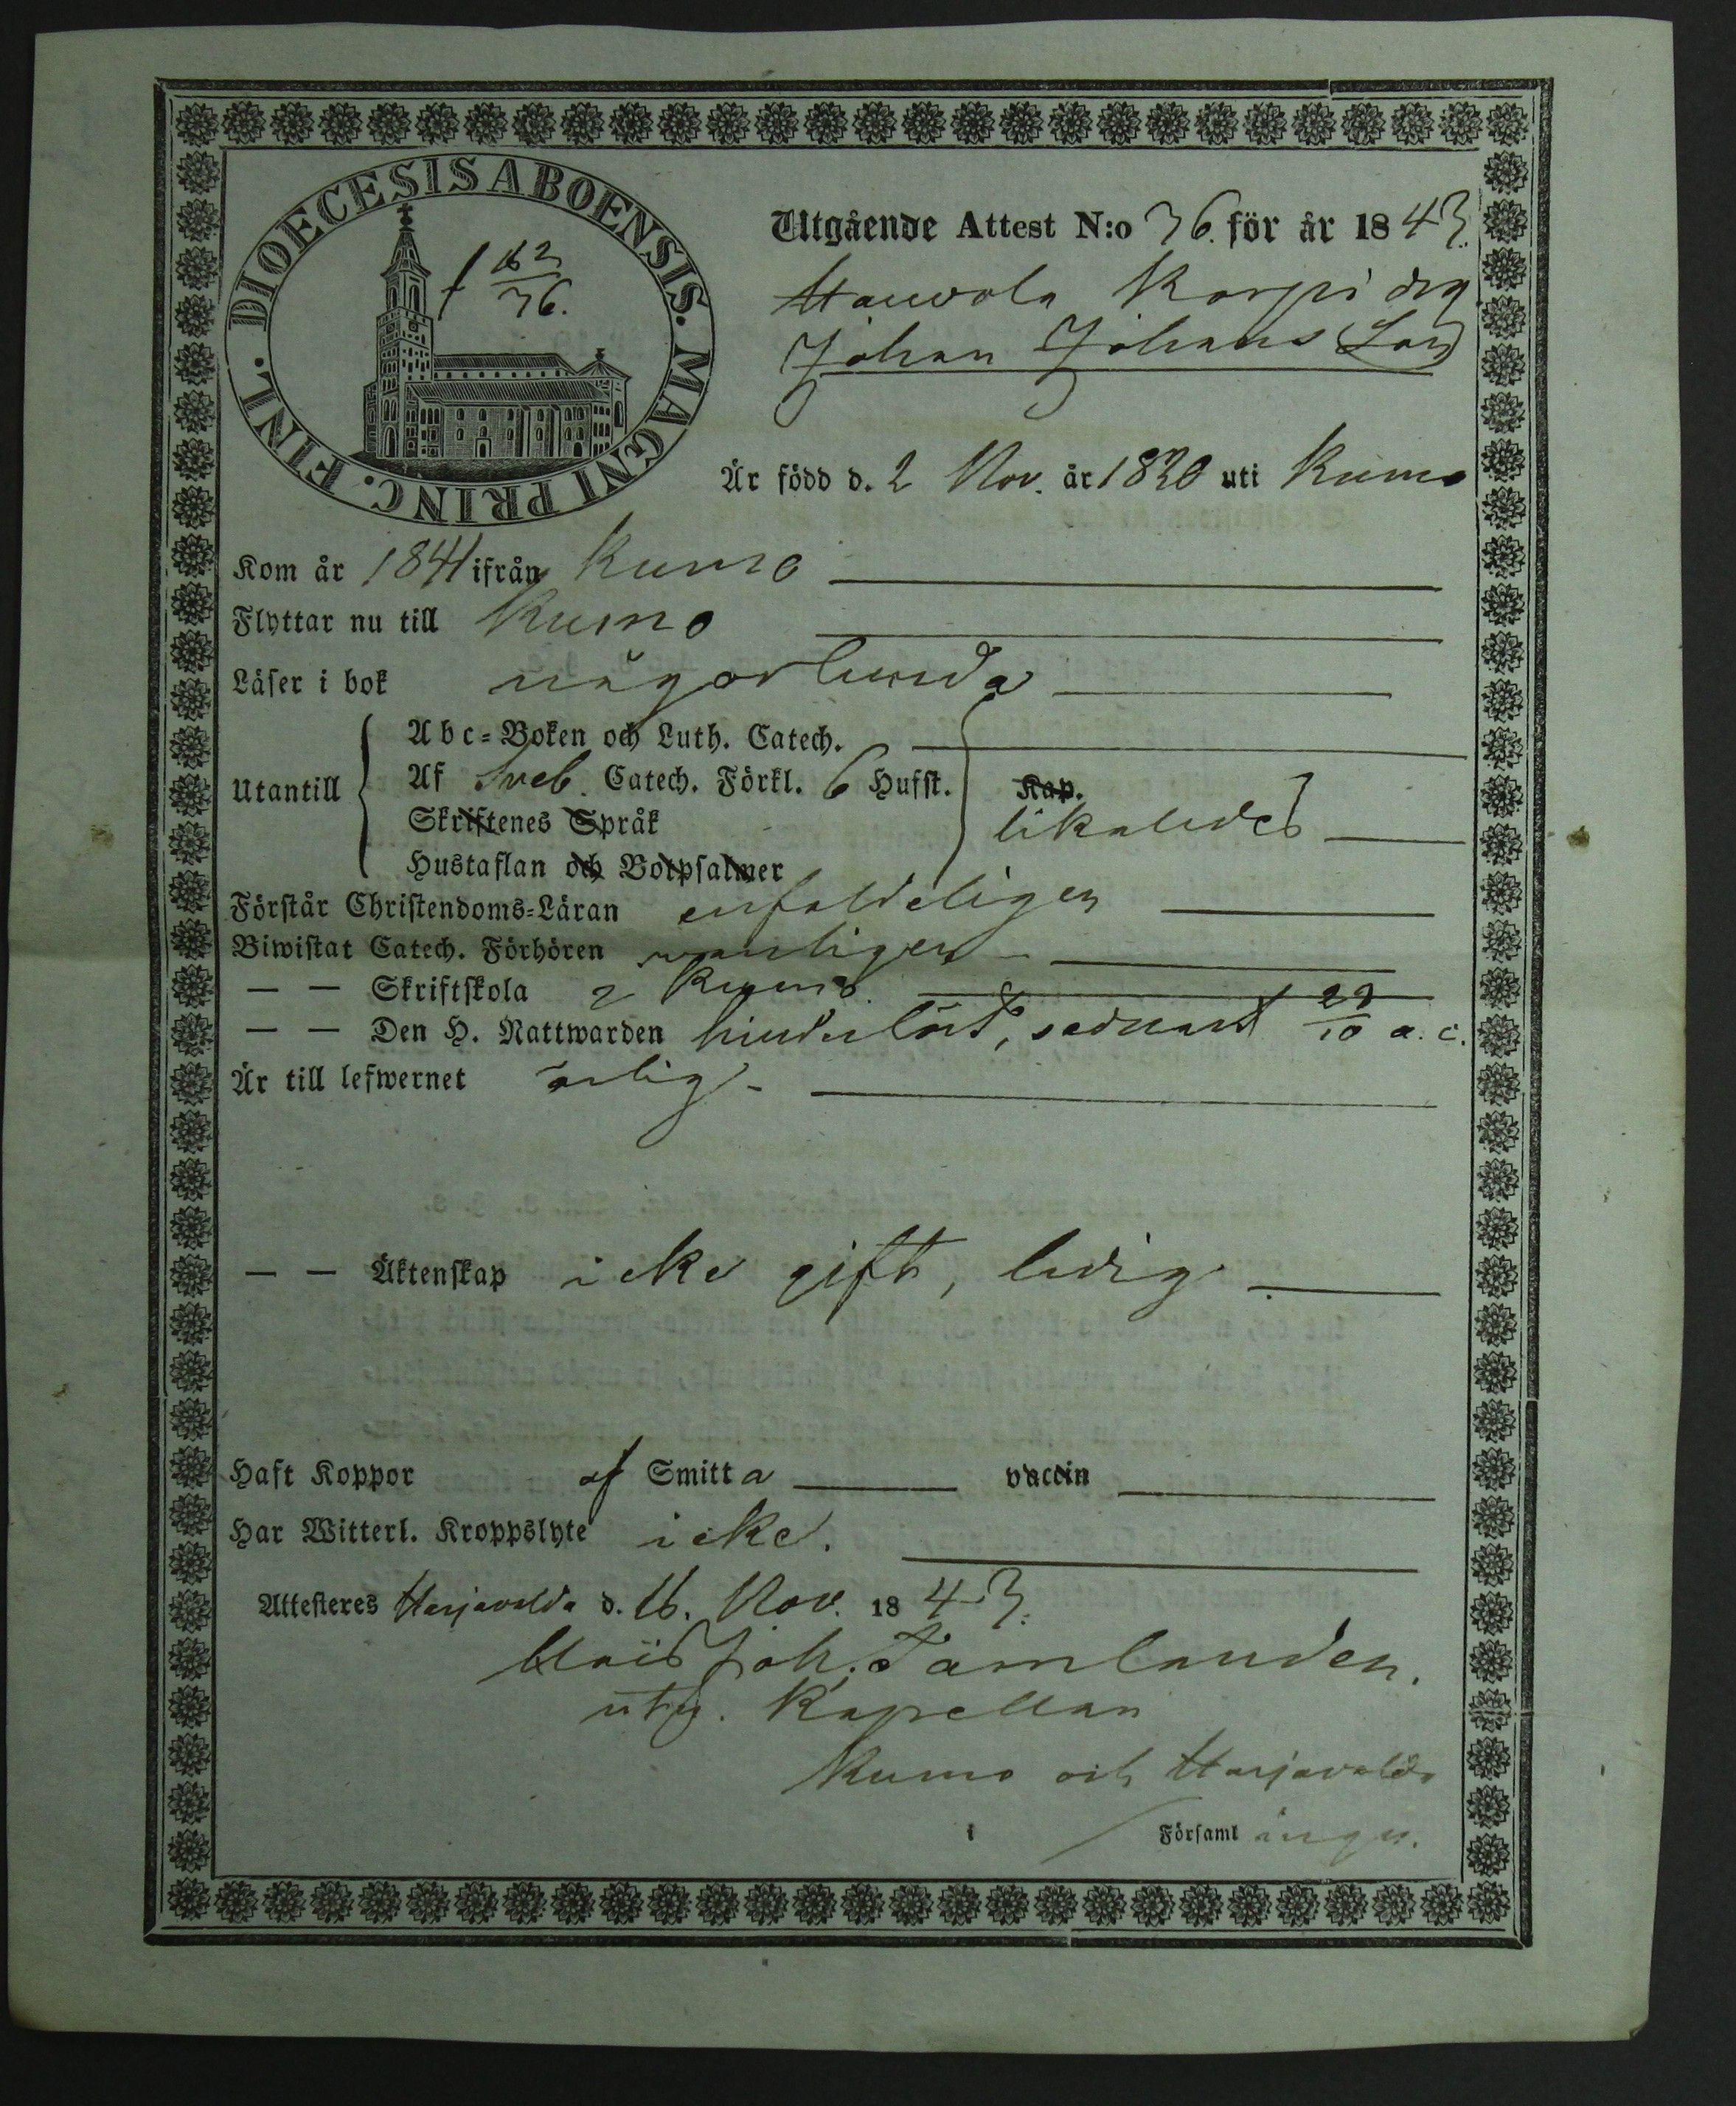 DIOECESIS ABOENSIS. MAGNI PRINC. FINL.
f 163/76.
Utgående Attest N:o 76. för år 1843.
Karpi drg
Johan Johans Son
Är född d. 2 Nov. år 1820 uti Kumo
Kom år 1841 ifrån Kumo
Flyttar nu till Kumo
Läser i bok någorlunda
Utantill
Abc-Boken och Luth. Catech.
Af Sveb. Catech. Förkl. 6 Hufst.
Kap.
Skriftenes Språk
likaledes
Hustaflan och Botpsalmer
Förstår Christendoms-Läran enfaldeligen
Biwistat Catech. Förhören vanligen
— — Skriftskola i Kumo
— — Den H. Nattwarden hinderlöst, sednast 22/10 a. c.
Är till lefwernet ärlig
— — Äktenskap icke gift, ledig
Haft Koppor af Smitta vaccin
Har Witterl. Kroppslyte icke.
Attesteres Harjavalda d. 16. Nov. 1843.
Joh. Tamlander.
Kapellan
Kumo och Harjavalda
i Församl ingr.